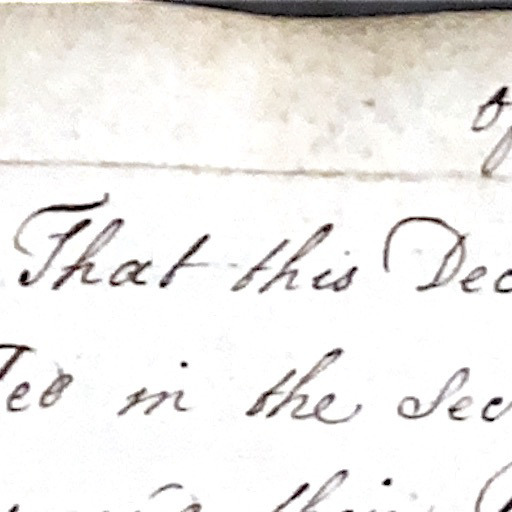 of
That this Dec
Ted in the Sec
their